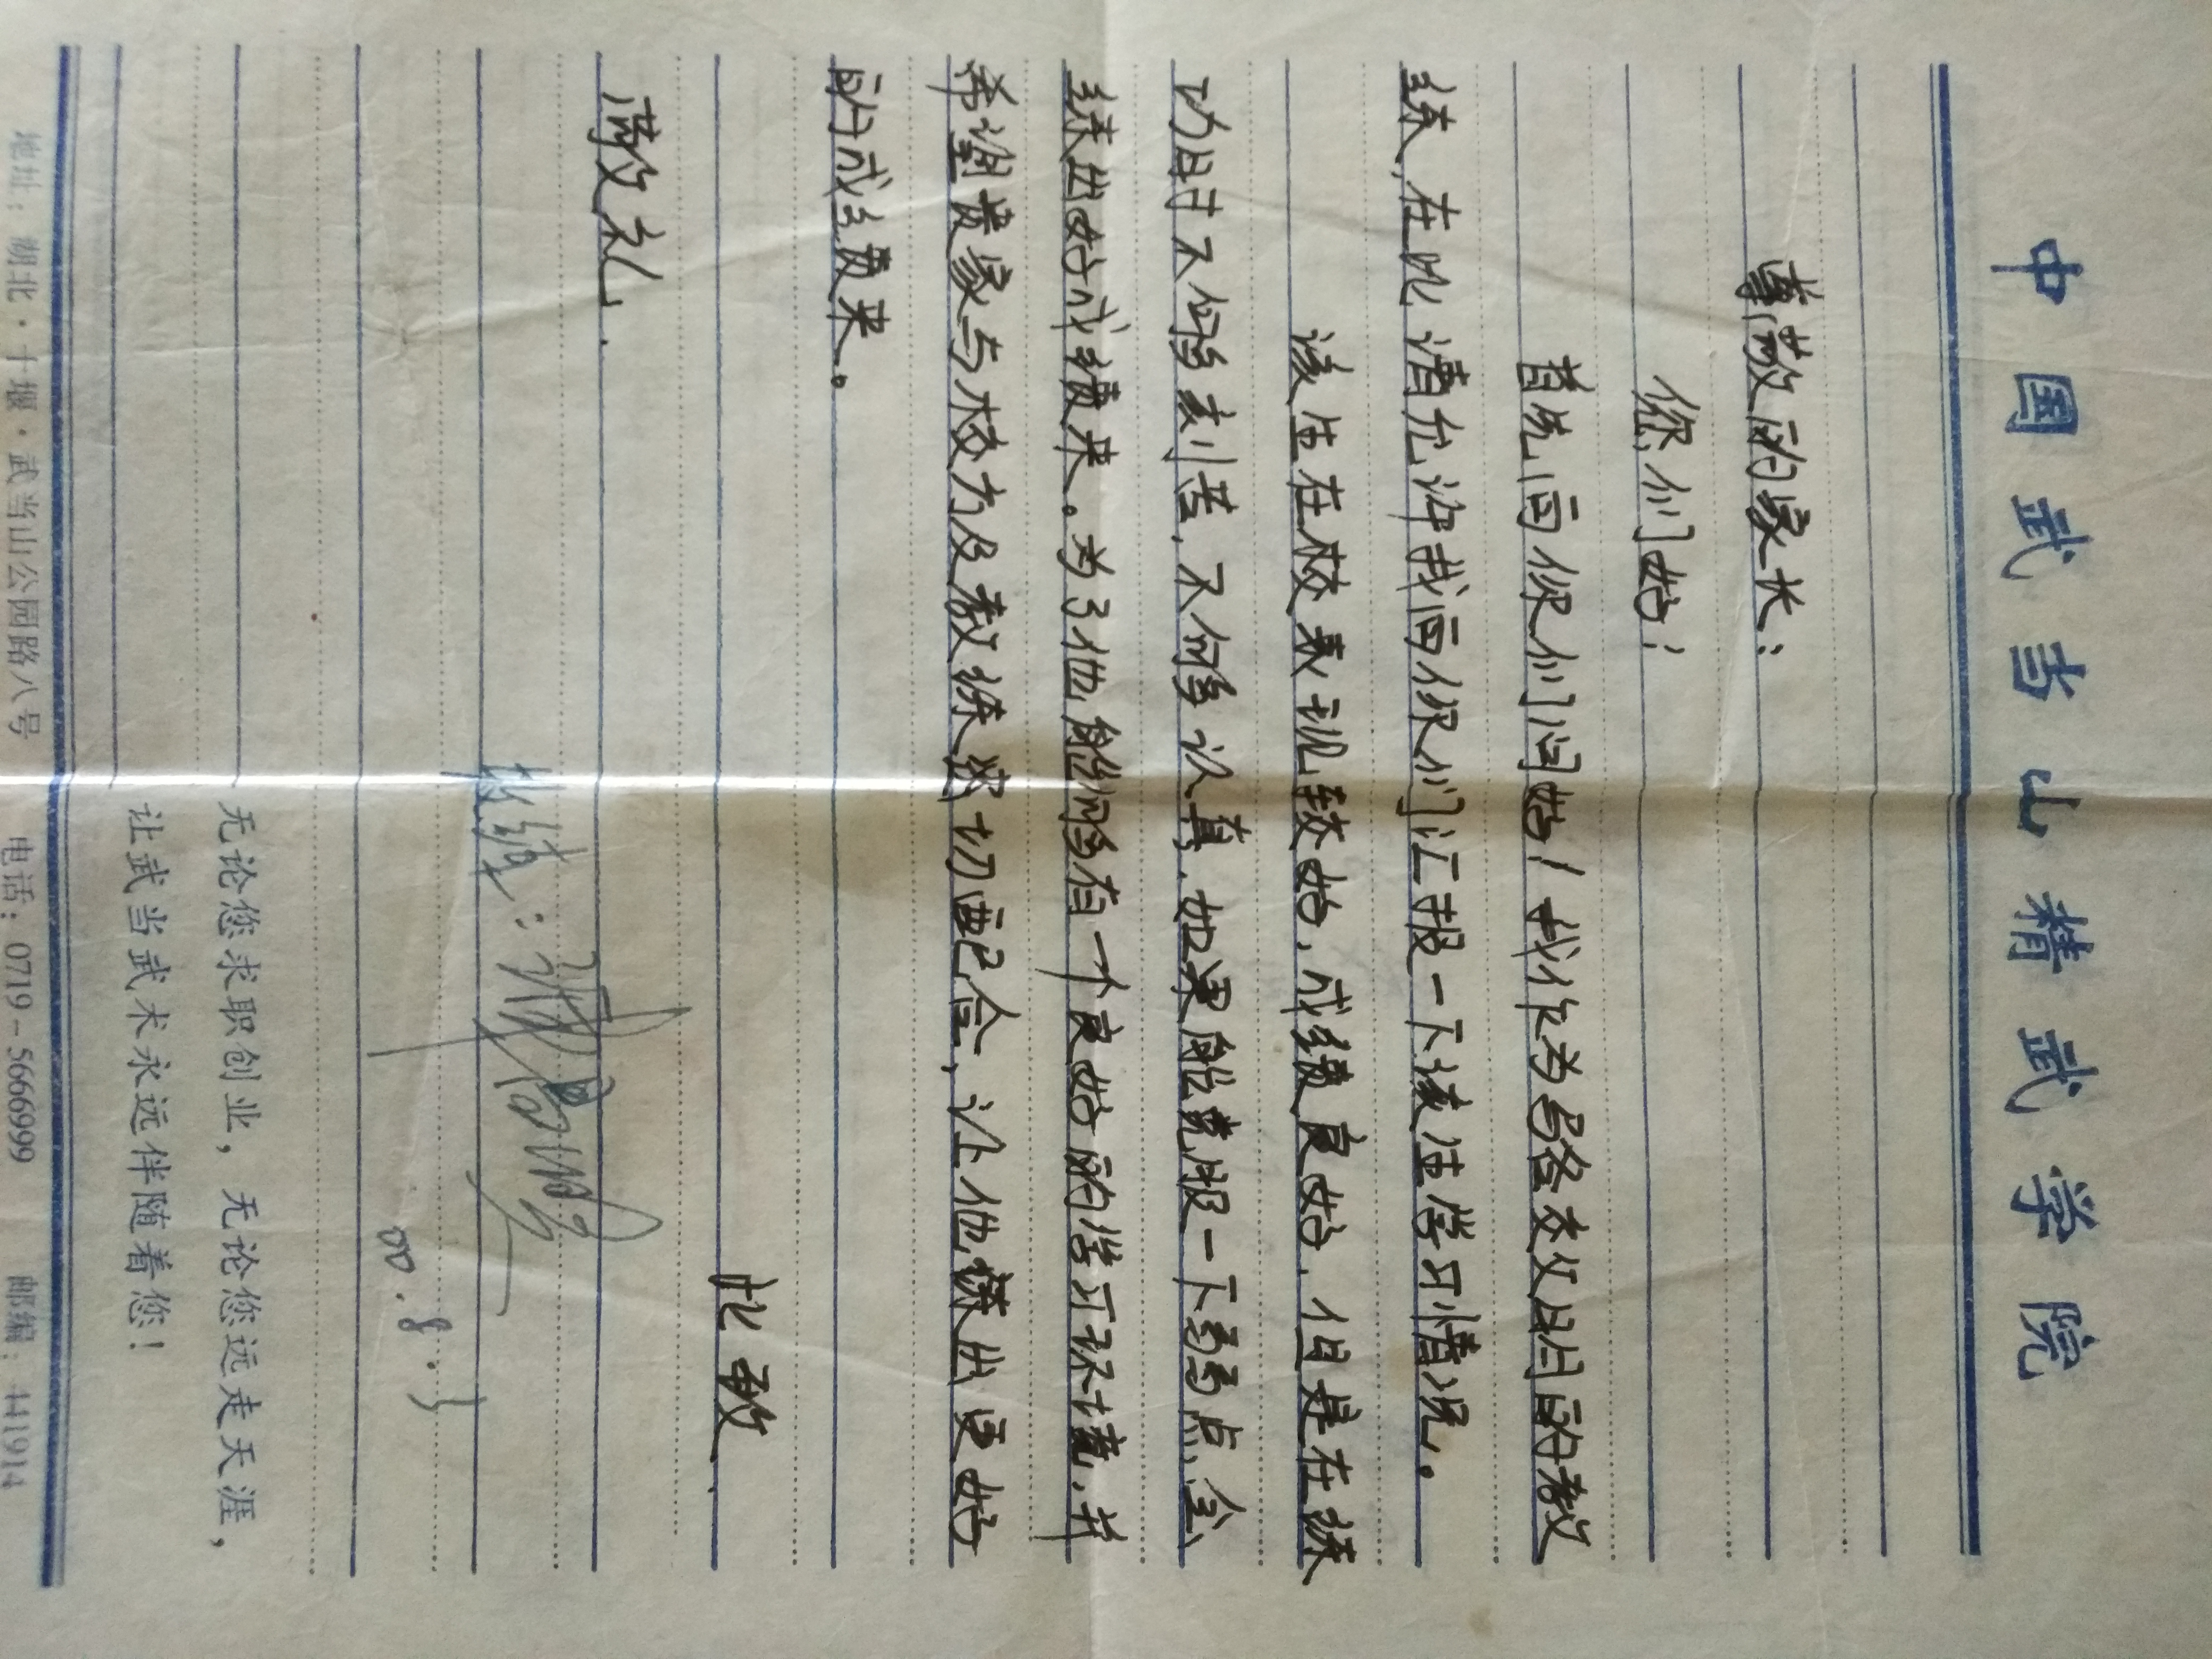 中国武当山精武学院
尊敬的家长：
您们好！
首先向您们问好！我作为吕登交文明的教
练，在此请允许我向您们汇报一下该生学习情况。
该生在校表现较好，成绩良好，但是在练
功时不够刻苦，不够认真，如果能克服一下弱点，会
练出好成绩来。为了他能够有一个良好的学习环境，并
希望贵家与校方及教练密切配合，让他练出更好
的成绩来。
此致
敬礼
教练：
00.8.
无论您求职创业，无论您远走天涯，
让武当武术永远伴随着您！
地址：湖北·十堰·武当山公园路八号 电话：0719-5666999 邮编：441914